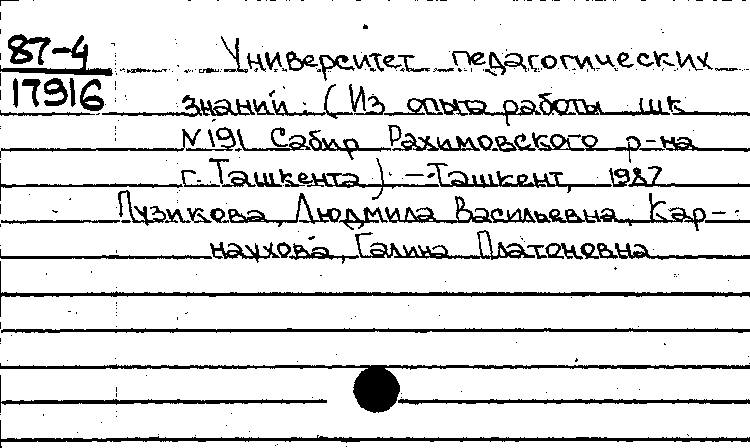 87-4
17916
Университет педагогических
знаний: (Из опыта работы шк
N 191 Сабир Рахимовского р-на
г. Ташкента). — Ташкент, 1987
Пузикова, Людмила Васильевна, Кар-
наухова, Галина Платоновна